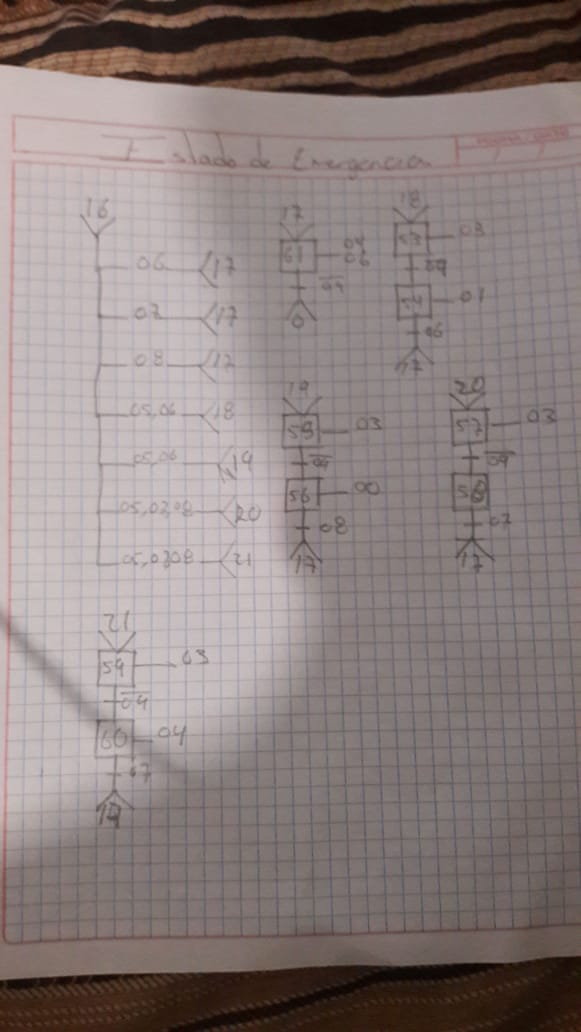 Estado de Emergencia
16
06 17
07 17
08 17
05,06 18
05,06 19
05,07,08 20
05,0708 21
17
61 04
06
09
0
18
53 03
09
54 01
06
17
19
03
09
56 00
08
17
20
57 03
09
58
07
17
21
59 03
04
60 04
07